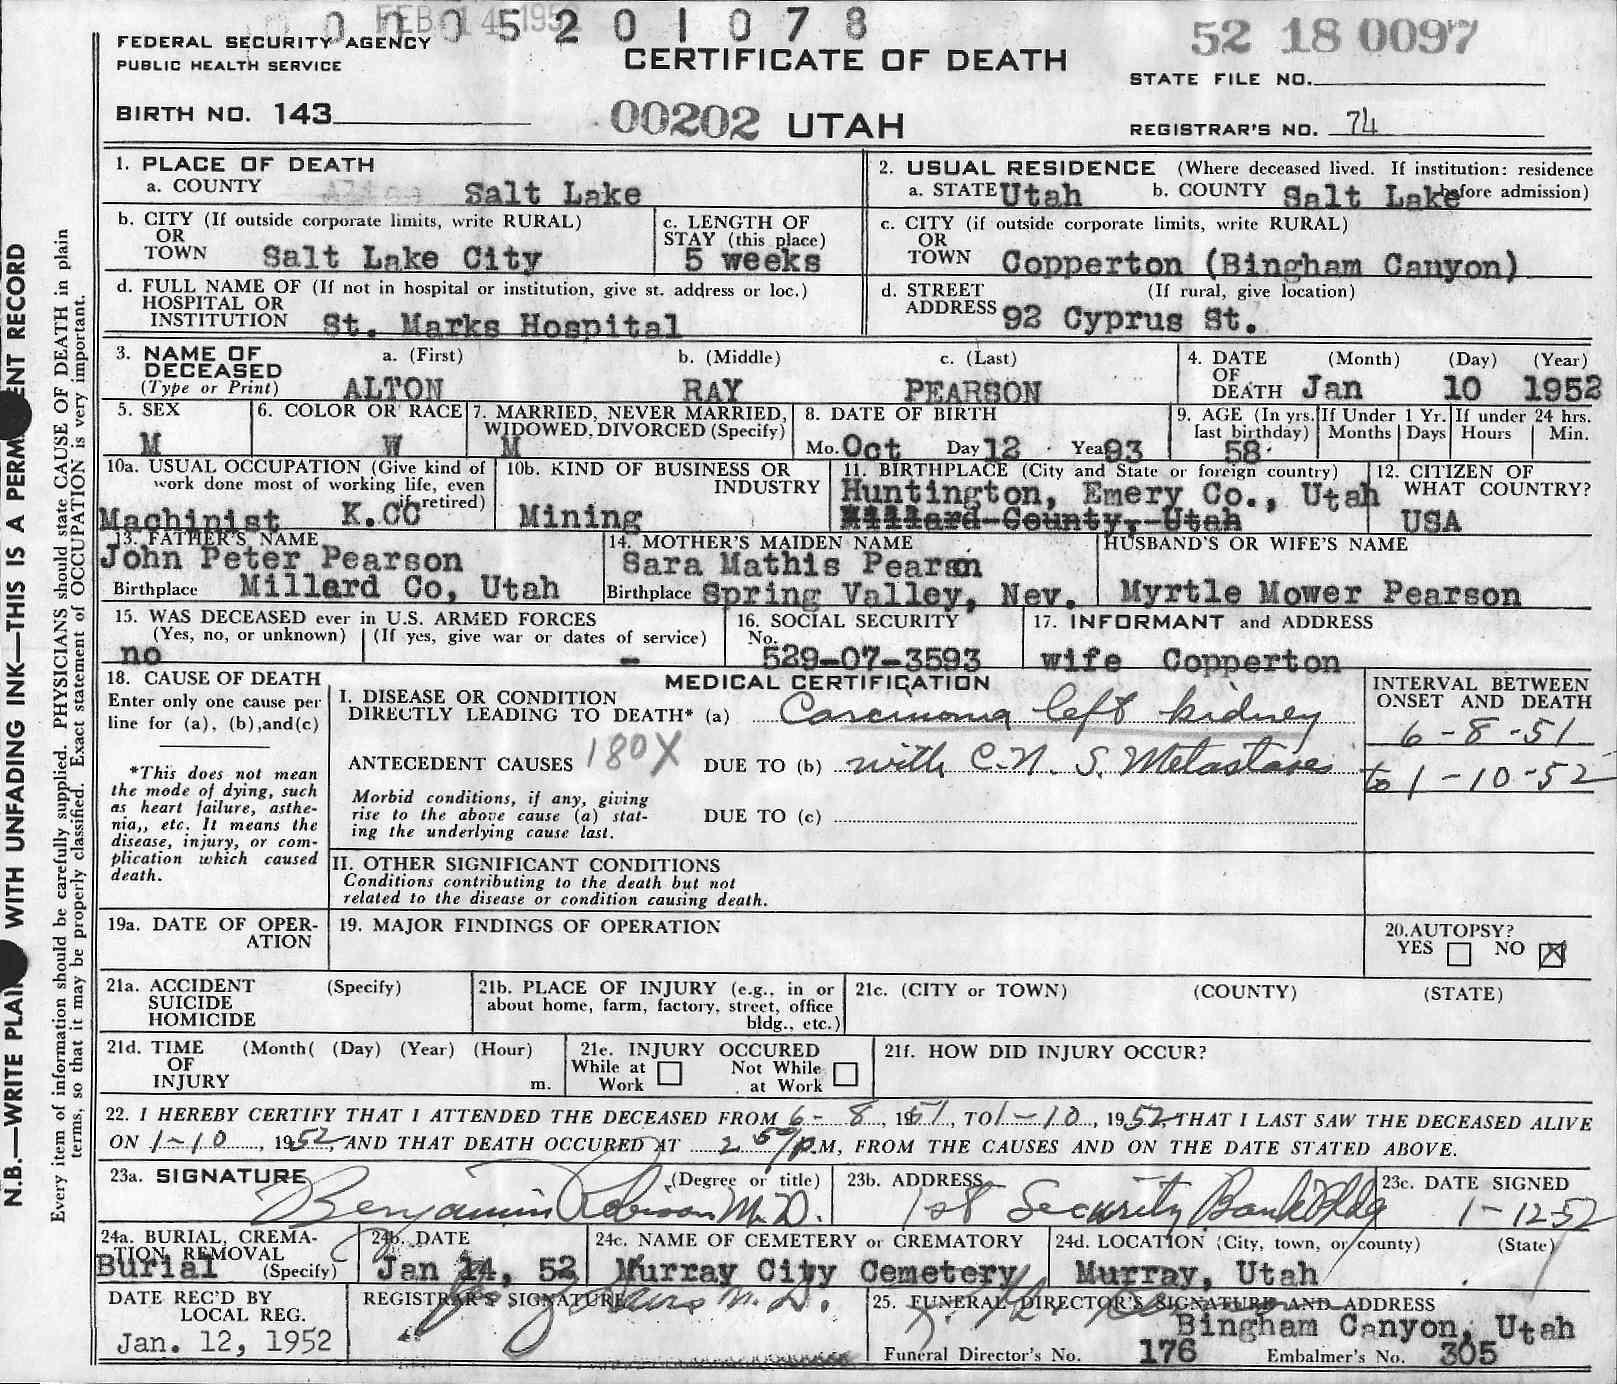 FEB 14 1952
0005201078
52 18 0097
FEDERAL SECURITY AGENCY
PUBLIC HEALTH SERVICE
CERTIFICATE OF DEATH
STATE FILE NO.
BIRTH NO. 143
00202 UTAH
REGISTRAR'S NO. 74
1. PLACE OF DEATH
a. COUNTY Salt Lake
2. USUAL RESIDENCE (Where deceased lived. If institution: residence before admission)
a. STATE Utah b. COUNTY Salt Lake
b. CITY (If outside corporate limits, write RURAL)
OR
TOWN Salt Lake City
c. LENGTH OF
STAY (this place)
5 weeks
c. CITY (if outside corporate limits, write RURAL)
OR
TOWN Copperton (Bingham Canyon)
d. FULL NAME OF (If not in hospital or institution, give st. address or loc.)
HOSPITAL OR
INSTITUTION St. Marks Hospital
d. STREET (If rural, give location)
ADDRESS 92 Cyprus St.
3. NAME OF DECEASED (Type or Print)
a. (First) b. (Middle) c. (Last)
ALTON RAY PEARSON
4. DATE OF DEATH (Month) (Day) (Year)
Jan 10 1952
5. SEX
M
6. COLOR OR RACE
W
7. MARRIED, NEVER MARRIED,
WIDOWED, DIVORCED (Specify)
M
8. DATE OF BIRTH
Mo. Oct Day 12 Yea 93
9. AGE (In yrs. last birthday)
58
If Under 1 Yr.
Months Days
If under 24 hrs.
Hours Min.
10a. USUAL OCCUPATION (Give kind of
work done most of working life, even
if retired)
Machinist K.CC
10b. KIND OF BUSINESS OR
INDUSTRY
Mining
11. BIRTHPLACE (City and State or foreign country)
Huntington, Emery Co., Utah
Millard County, Utah
12. CITIZEN OF
WHAT COUNTRY?
USA
13. FATHER'S NAME
John Peter Pearson
Birthplace Millard Co, Utah
14. MOTHER'S MAIDEN NAME
Sara Mathis Pearson
Birthplace Spring Valley, Nev.
HUSBAND'S OR WIFE'S NAME
Myrtle Mower Pearson
15. WAS DECEASED ever in U.S. ARMED FORCES
(Yes, no, or unknown) (If yes, give war or dates of service)
no -
16. SOCIAL SECURITY
No.
529-07-3593
17. INFORMANT and ADDRESS
wife Copperton
18. CAUSE OF DEATH
Enter only one cause per
line for (a), (b),and(c)
*This does not mean
the mode of dying, such
as heart failure, asthe-
nia,, etc. It means the
disease, injury, or com-
plication which caused
death.
MEDICAL CERTIFICATION
I. DISEASE OR CONDITION
DIRECTLY LEADING TO DEATH* (a) Carcinoma left kidney
ANTECEDENT CAUSES 180X DUE TO (b) with C.N.S. Metastases
Morbid conditions, if any, giving
rise to the above cause (a) stat-
ing the underlying cause last.
DUE TO (c)
INTERVAL BETWEEN
ONSET AND DEATH
6-8-51
to 1-10-52
II. OTHER SIGNIFICANT CONDITIONS
Conditions contributing to the death but not
related to the disease or condition causing death.
19a. DATE OF OPER-
ATION
19. MAJOR FINDINGS OF OPERATION
20.AUTOPSY?
YES NO
21a. ACCIDENT (Specify)
SUICIDE
HOMICIDE
21b. PLACE OF INJURY (e.g., in or
about home, farm, factory, street, office
bldg., etc.)
21c. (CITY or TOWN) (COUNTY) (STATE)
21d. TIME (Month( (Day) (Year) (Hour)
OF
INJURY m.
21e. INJURY OCCURED
While at Work Not While at Work
21f. HOW DID INJURY OCCUR?
22. I HEREBY CERTIFY THAT I ATTENDED THE DECEASED FROM 6-8, 1951, TO 1-10, 1952 THAT I LAST SAW THE DECEASED ALIVE
ON 1-10, 1952, AND THAT DEATH OCCURED AT 2 50 P.M, FROM THE CAUSES AND ON THE DATE STATED ABOVE.
23a. SIGNATURE (Degree or title)
Benjamin Robison M.D.
23b. ADDRESS
1st Security Bank Bldg
23c. DATE SIGNED
1-12-52
24a. BURIAL, CREMA-
TION, REMOVAL
(Specify)
Burial
24b. DATE
Jan 14, 52
24c. NAME OF CEMETERY or CREMATORY
Murray City Cemetery
24d. LOCATION (City, town, or county) (State)
Murray, Utah
DATE REC'D BY
LOCAL REG.
Jan. 12, 1952
REGISTRAR'S SIGNATURE
M.D.
25. FUNERAL DIRECTOR'S SIGNATURE AND ADDRESS
Bingham Canyon, Utah
Funeral Director's No. 176 Embalmer's No. 305
N.B.—WRITE PLAIN WITH UNFADING INK—THIS IS A PERM ENT RECORD
Every item of information should be carefully supplied. PHYSICIANS should state CAUSE OF DEATH in plain
terms, so that it may be properly classified. Exact statement of OCCUPATION is very important.